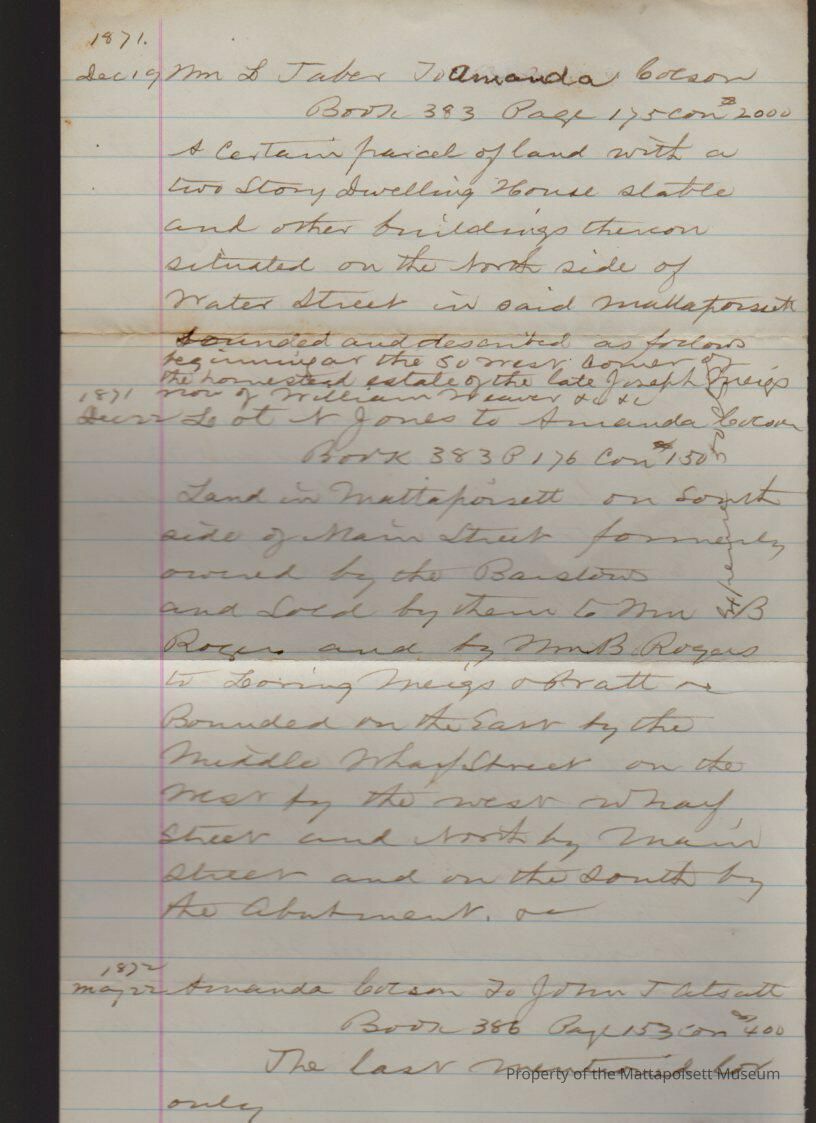 1871.
Dec 19 Wm L Taber To Amanda Colson
Book 383 Page 175 Con $ 2000
A Certain parcel of land with a
two Story Dwelling House stable
and other buildings thereon
situated on the North side of
Water Street in said Mattapoisett
bounded and described as follows
beginning at the So West Corner of
the homestead estate of the late Joseph Meigs
now of William Weaver &c &c
1871
Dec 22 Lot N Jones to Amanda Colson
Book 383 P 176 Con $ 150
Land in Mattapoisett on South
side of Main Street formerly
owned by the Barstows
and Sold by them to Wm B
Rogers and by Wm B Rogers
to Loring Meigs & Pratt &c
Bounded on the East by the
Middle Wharf Street on the
West by the west Wharf
Street and North by Main
Street and on the South by
the Abutment. &c
1872
May 22 Amanda Colson To John T Atsatt
Book 386 Page 153 Con $ 400
The last mentioned lot
only
Property of the Mattapoisett Museum